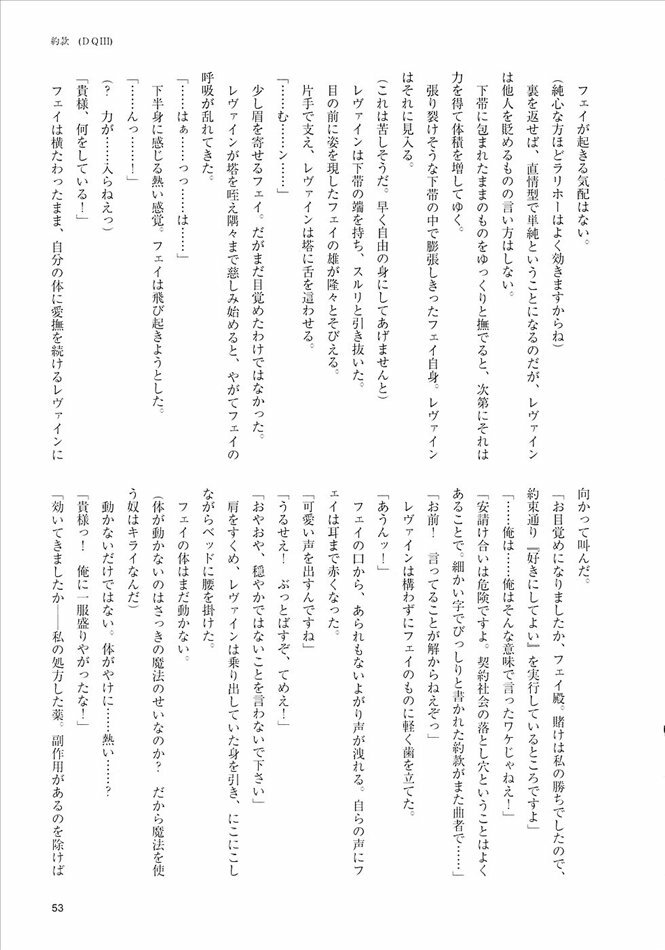 約款　(DQⅢ)
フェイが起きる気配はない。
(純心な方ほどラリホーはよく効きますからね)
裏を返せば、直情型で単純ということになるのだが、レヴァイン
は他人を貶めるものの言い方はしない。
下帯に包まれたままのものをゆっくりと撫でると、次第にそれは
力を得て体積を増してゆく。
張り裂けそうな下帯の中で膨張しきったフェイ自身。レヴァイン
はそれに見入る。
(これは苦しそうだ。早く自由の身にしてあげませんと)
レヴァインは下帯の端を持ち、スルリと引き抜いた。
目の前に姿を現したフェイの雄が隆々とそびえる。
片手で支え、レヴァインは塔に舌を這わせる。
「……む……ン……」
少し眉を寄せるフェイ。だがまだ目覚めたわけではなかった。
レヴァインが塔を咥え隅々まで慈しみ始めると、やがてフェイの
呼吸が乱れてきた。
「……はぁ……っっ……は……」
下半身に感じる熱い感覚。フェイは飛び起きようとした。
「……んっ……！」
(？　力が……入らねえっ)
「貴様、何をしている！」
フェイは横たわったまま、自分の体に愛撫を続けるレヴァインに
向かって叫んだ。
「お目覚めになりましたか、フェイ殿。賭けは私の勝ちでしたので、
約束通り『好きにしてよい』を実行しているところですよ」
「……俺は……俺はそんな意味で言ったワケじゃねえ！」
「安請け合いは危険ですよ。契約社会の落とし穴ということはよく
あることで。細かい字でびっしりと書かれた約款がまた曲者で……」
「お前！　言ってることが解からねえぞっ」
レヴァインは構わずにフェイのものに軽く歯を立てた。
「あうんッ！」
フェイの口から、あられもないよがり声が洩れる。自らの声にフ
ェイは耳まで赤くなった。
「可愛い声を出すんですね」
「うるせえ！　ぶっとばすぞ、てめえ！」
「おやおや、穏やかではないことを言わないで下さい」
肩をすくめ、レヴァインは乗り出していた身を引き、にこにこし
ながらベッドに腰を掛けた。
フェイの体はまだ動かない。
(体が動かないのはさっきの魔法のせいなのか？　だから魔法を使
う奴はキライなんだ)
動かないだけではない。体がやけに……熱い……？
「貴様っ！　俺に一服盛りやがったな！」
「効いてきましたか――私の処方した薬。副作用があるのを除けば
53